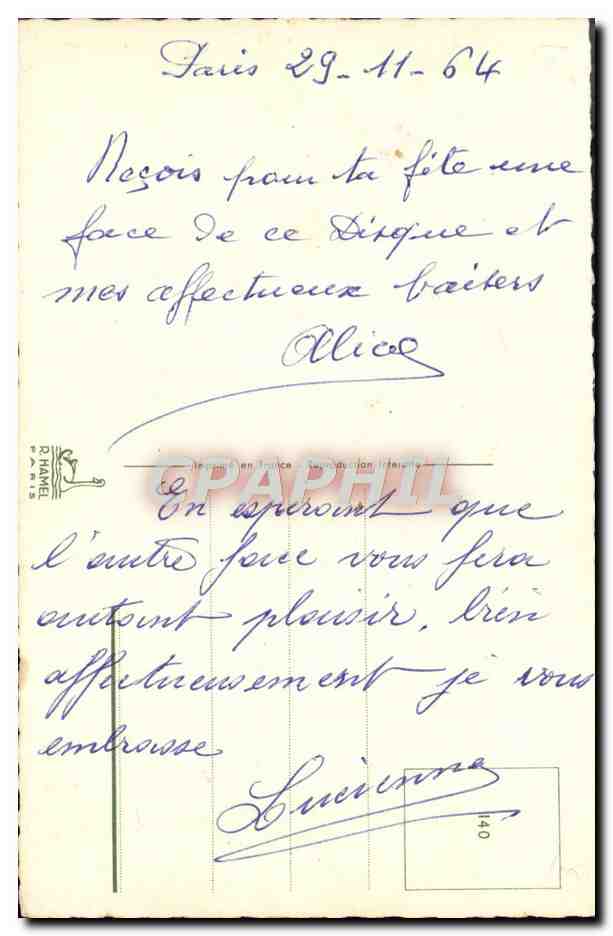 Paris 29-11-64
Reçois pour ta fête une
face de ce Disque et
mes affectueux baisers
Alice
R. HAMEL
PARIS
Imprimé en France - Reproduction Interdite
CPAPHIL
En esperant que
l'autre face vous fera
autant plaisir, bien
affectueusement je vous
embrasse
Lucienne
140